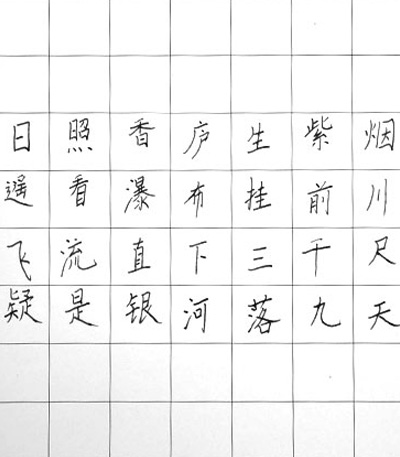 日照香庐生紫烟
遥看瀑布挂前川
飞流直下三千尺
疑是银河落九天